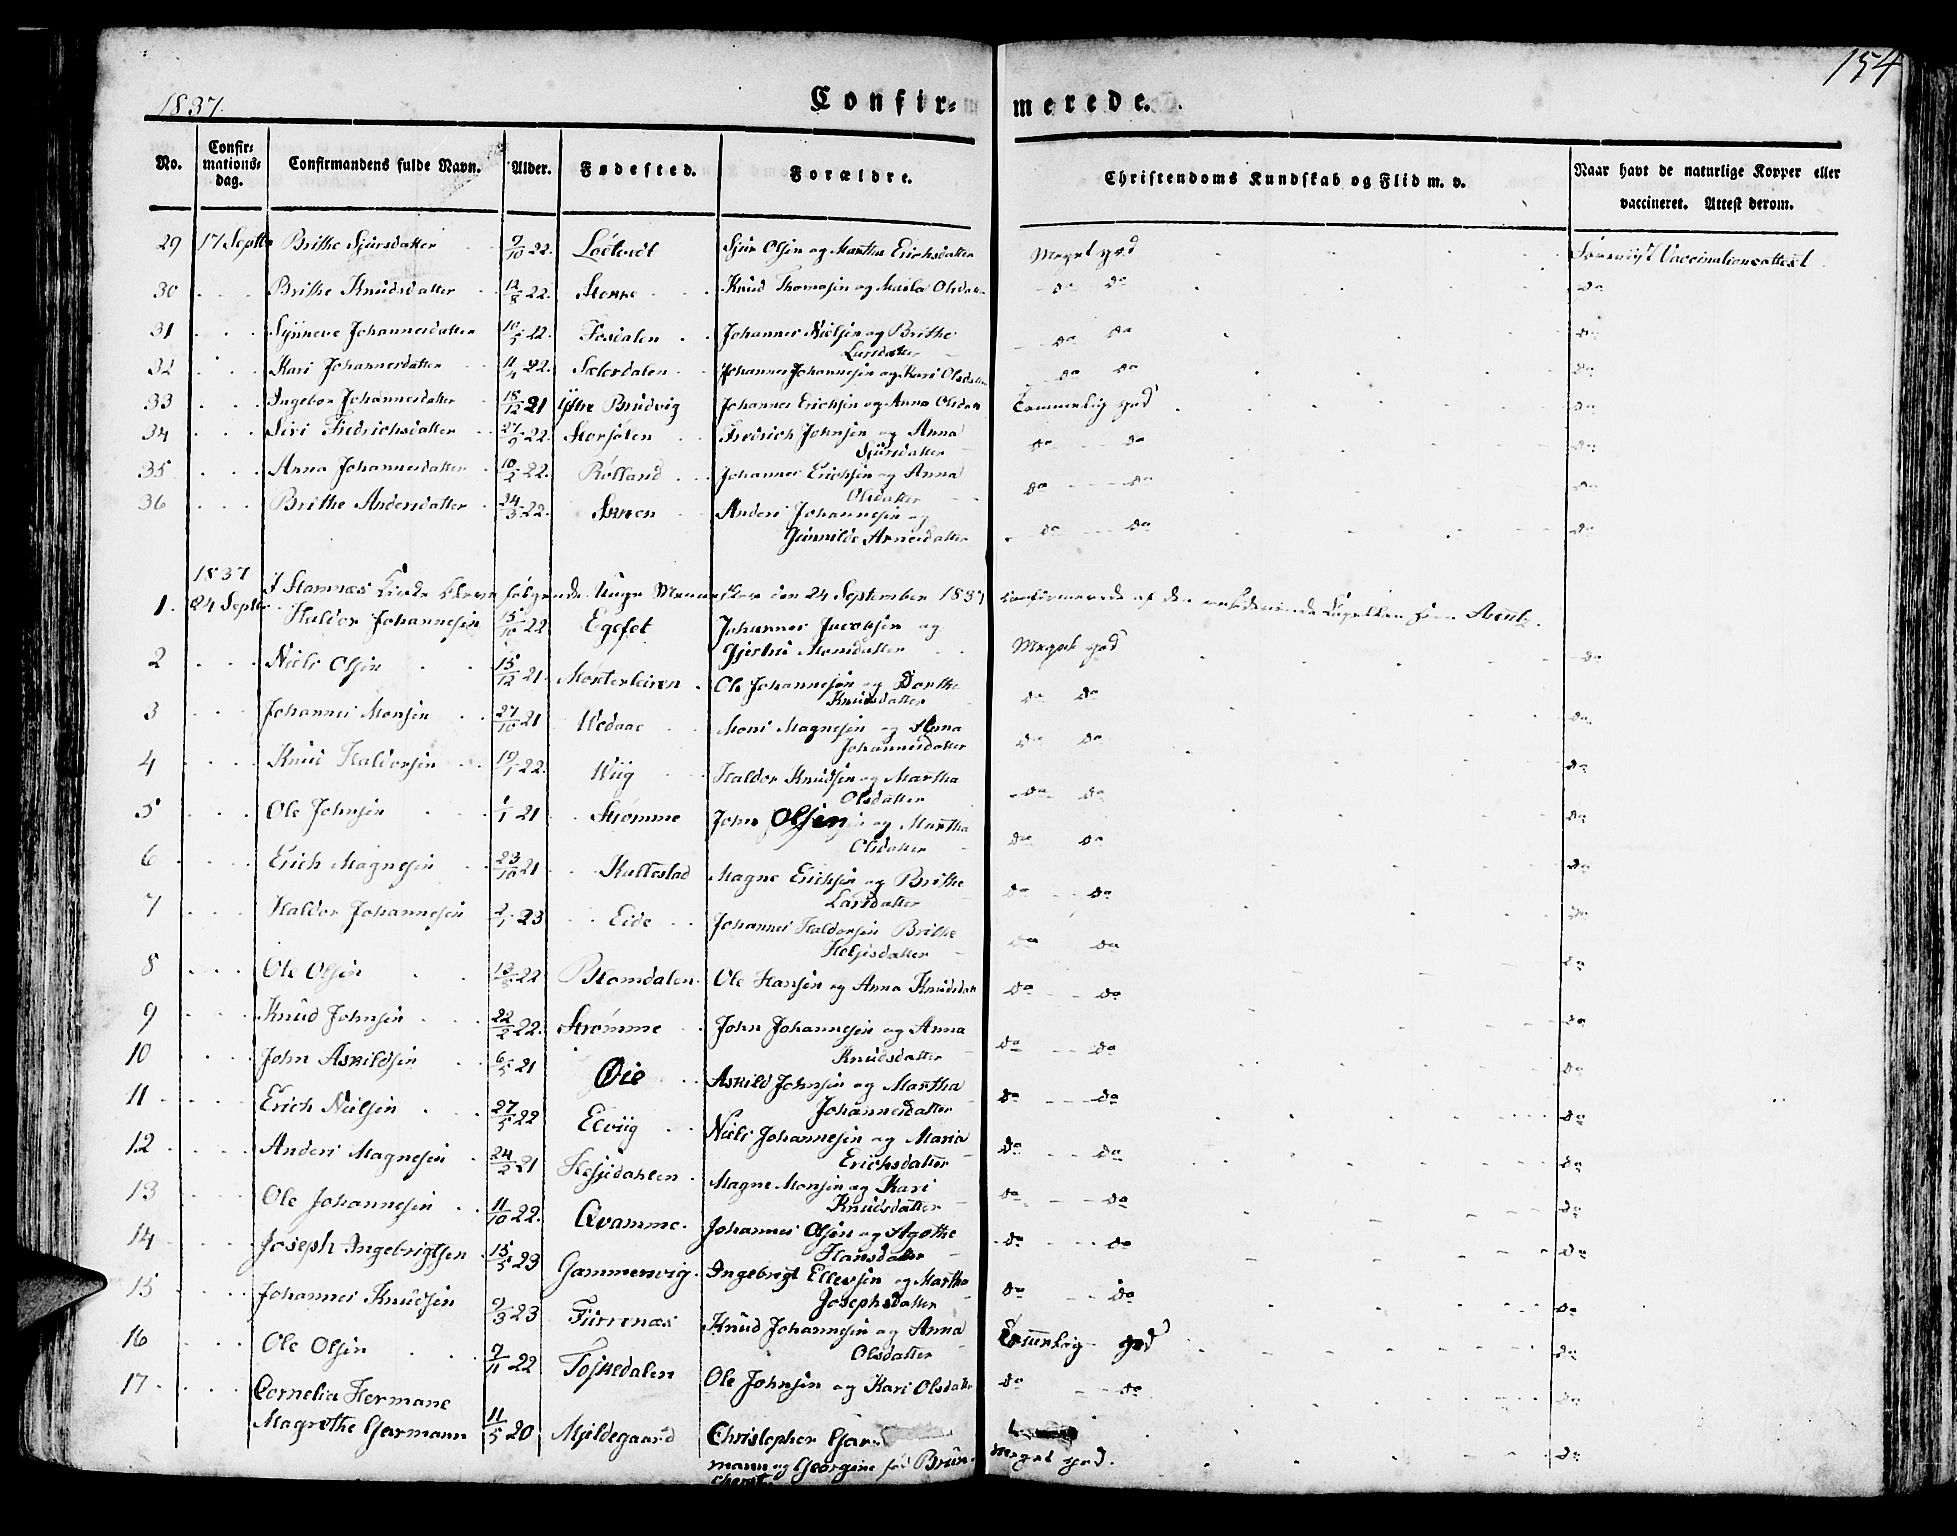 154
1837.
Confirmerede.
No. Confirmations-dag. Confirmandens fulde Navn. Alder. Fødested. Forældre. Christendoms Kundskab og Flid m. v. Naar havt de naturlige Kopper eller vaccineret. Attest derom.
29 17 Septbr Brithe Sjursdatter 9/10 22. Sjur Olsen og Martha Erichsdatter Meget god Vaccinationsattest
30 Brithe Knudsdatter 12/8 22. Knud Thomasen og Olsdatter do do do
31 Synneve Johannesdatter 10/5 22. Fosdalen Johannes Nielsen og Brithe
Larsdatter do do do
32 Kari Johannesdatter 11/4 22. Sælerdalen Johannes Johannesen og Kari Olsdatter do do do
33 Ingebor Johannesdatter 18/12 21 Ystre Brudvig Johannes Erichsen og Anna Olsdatter Temmelig god do
34 Siri Fredrichsdatter 27/9 22. Storsølen Fredrich Johnsen og Anna
Sjursdatter do do do
35 Anna Johannesdatter 10/2 22. Rølland Johannes Erichsen og Anna
Olsdatter do do do
36 Brithe Andersdatter 24/3 22. Anders Johannesen og
Gunnilde Arnesdatter do do do
1837 I Stamnæs Kirke bleve følgende Unge Mennesker den 24 September 1837 confirmerede af den
1. 24 Septbr Haldor Johannesen 15/10 22 Egeset Johannes Jacobsen og
Gjertrü Monsdatter Meget god do
2 Niels Olsen 15/12 21. Mosterleiren Ole Johannesen og Dorthe
Knudsdatter do do
3 Johannes Monsen 27/10 21 Wedaae Mons Magnesen og Anna
Johannesdatter do do do
4 Knud Haldorsen 19/1 22. Wiig Haldor Knudsen og Martha
Olsdatter do do do
5 Ole Johnsen 1/1 21 Strømme John Olsen og Martha
Olsdatter do do do
6 Erich Magnesen 23/10 21 Kallestad Magne Erichsen og Brithe
Larsdatter do do do
7 Haldor Johannesen 2/1 23 Eide Johannes Haldorsen Brithe
Heljesdatter do do do
8 Ole Olsen 13/8 22 Blomdalen Ole Hansen og Anna Knudsdatter do do do
9 Knud Johnsen 22/2 22. Strømme John Johannesen og Anna
Knudsdatter do do do
10 John Askildsen 6/5 21 Øie Askild Johnsen og Martha
Johannesdatter do do do
11 Erich Nielsen 27/5 22 Elviig Niels Johannesen og Maria
Erichsdatter do do do
12 Anders Magnesen 24/2 21 Hesjedahlen Magne Monsen og Kari
Knudsdatter do do do
13 Ole Johannesen 11/10 22. Qvamme Johannes Olsen og Agathe
Hansdatter do do do
14 Joseph Ingebrigtsen 15/5 23 Gammersvig Ingebrigt Ellevsen og Martha
Josephsdatter do do do
15 Johannes Knudsen 9/3 23 Furrenæs Knud Johannesen og Anna
Olsdatter Temmelig god do
16 Ole Olsen 9/11 22 Toskedalen Ole Johnsen og Kari Olsdatter do do do
17 Cornelia Hermane
Magrethe Garmann 11/5 20 Mjeldegaard Christopher Gar-
mann og Georgine fød Brun-
chorst Meget god. do